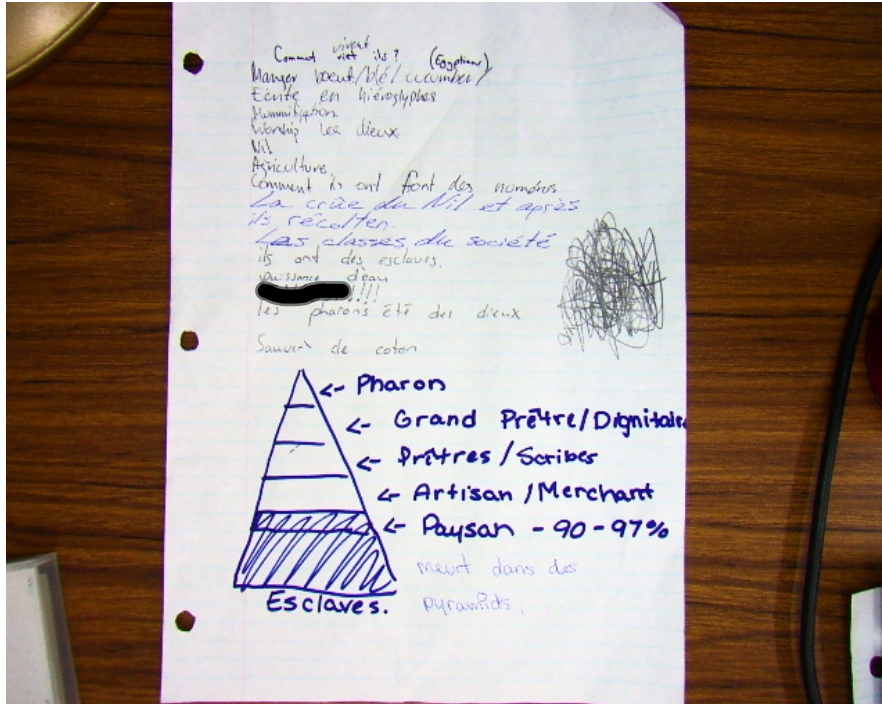 Comment vivent ils? (Egyptien)
Manger boeuf/blé/cucumber/
Ecrite en hiéroglyphes
Mummification
Worship les dieux
Nil
Agriculture
Comment ils ont font des numéros
La crûe du Nil et après
ils récolten.
Les classes du société
ils ont des esclaves.
puissance d'eau
!!!
les pharons été des dieux
de coton
<- Pharon
<- Grand Prêtre/Dignitaire
<- Prêtres / Scribes
<- Artisan / Merchant
<- Paysan - 90 - 97%
meurt dans des
Esclaves. pyramids.